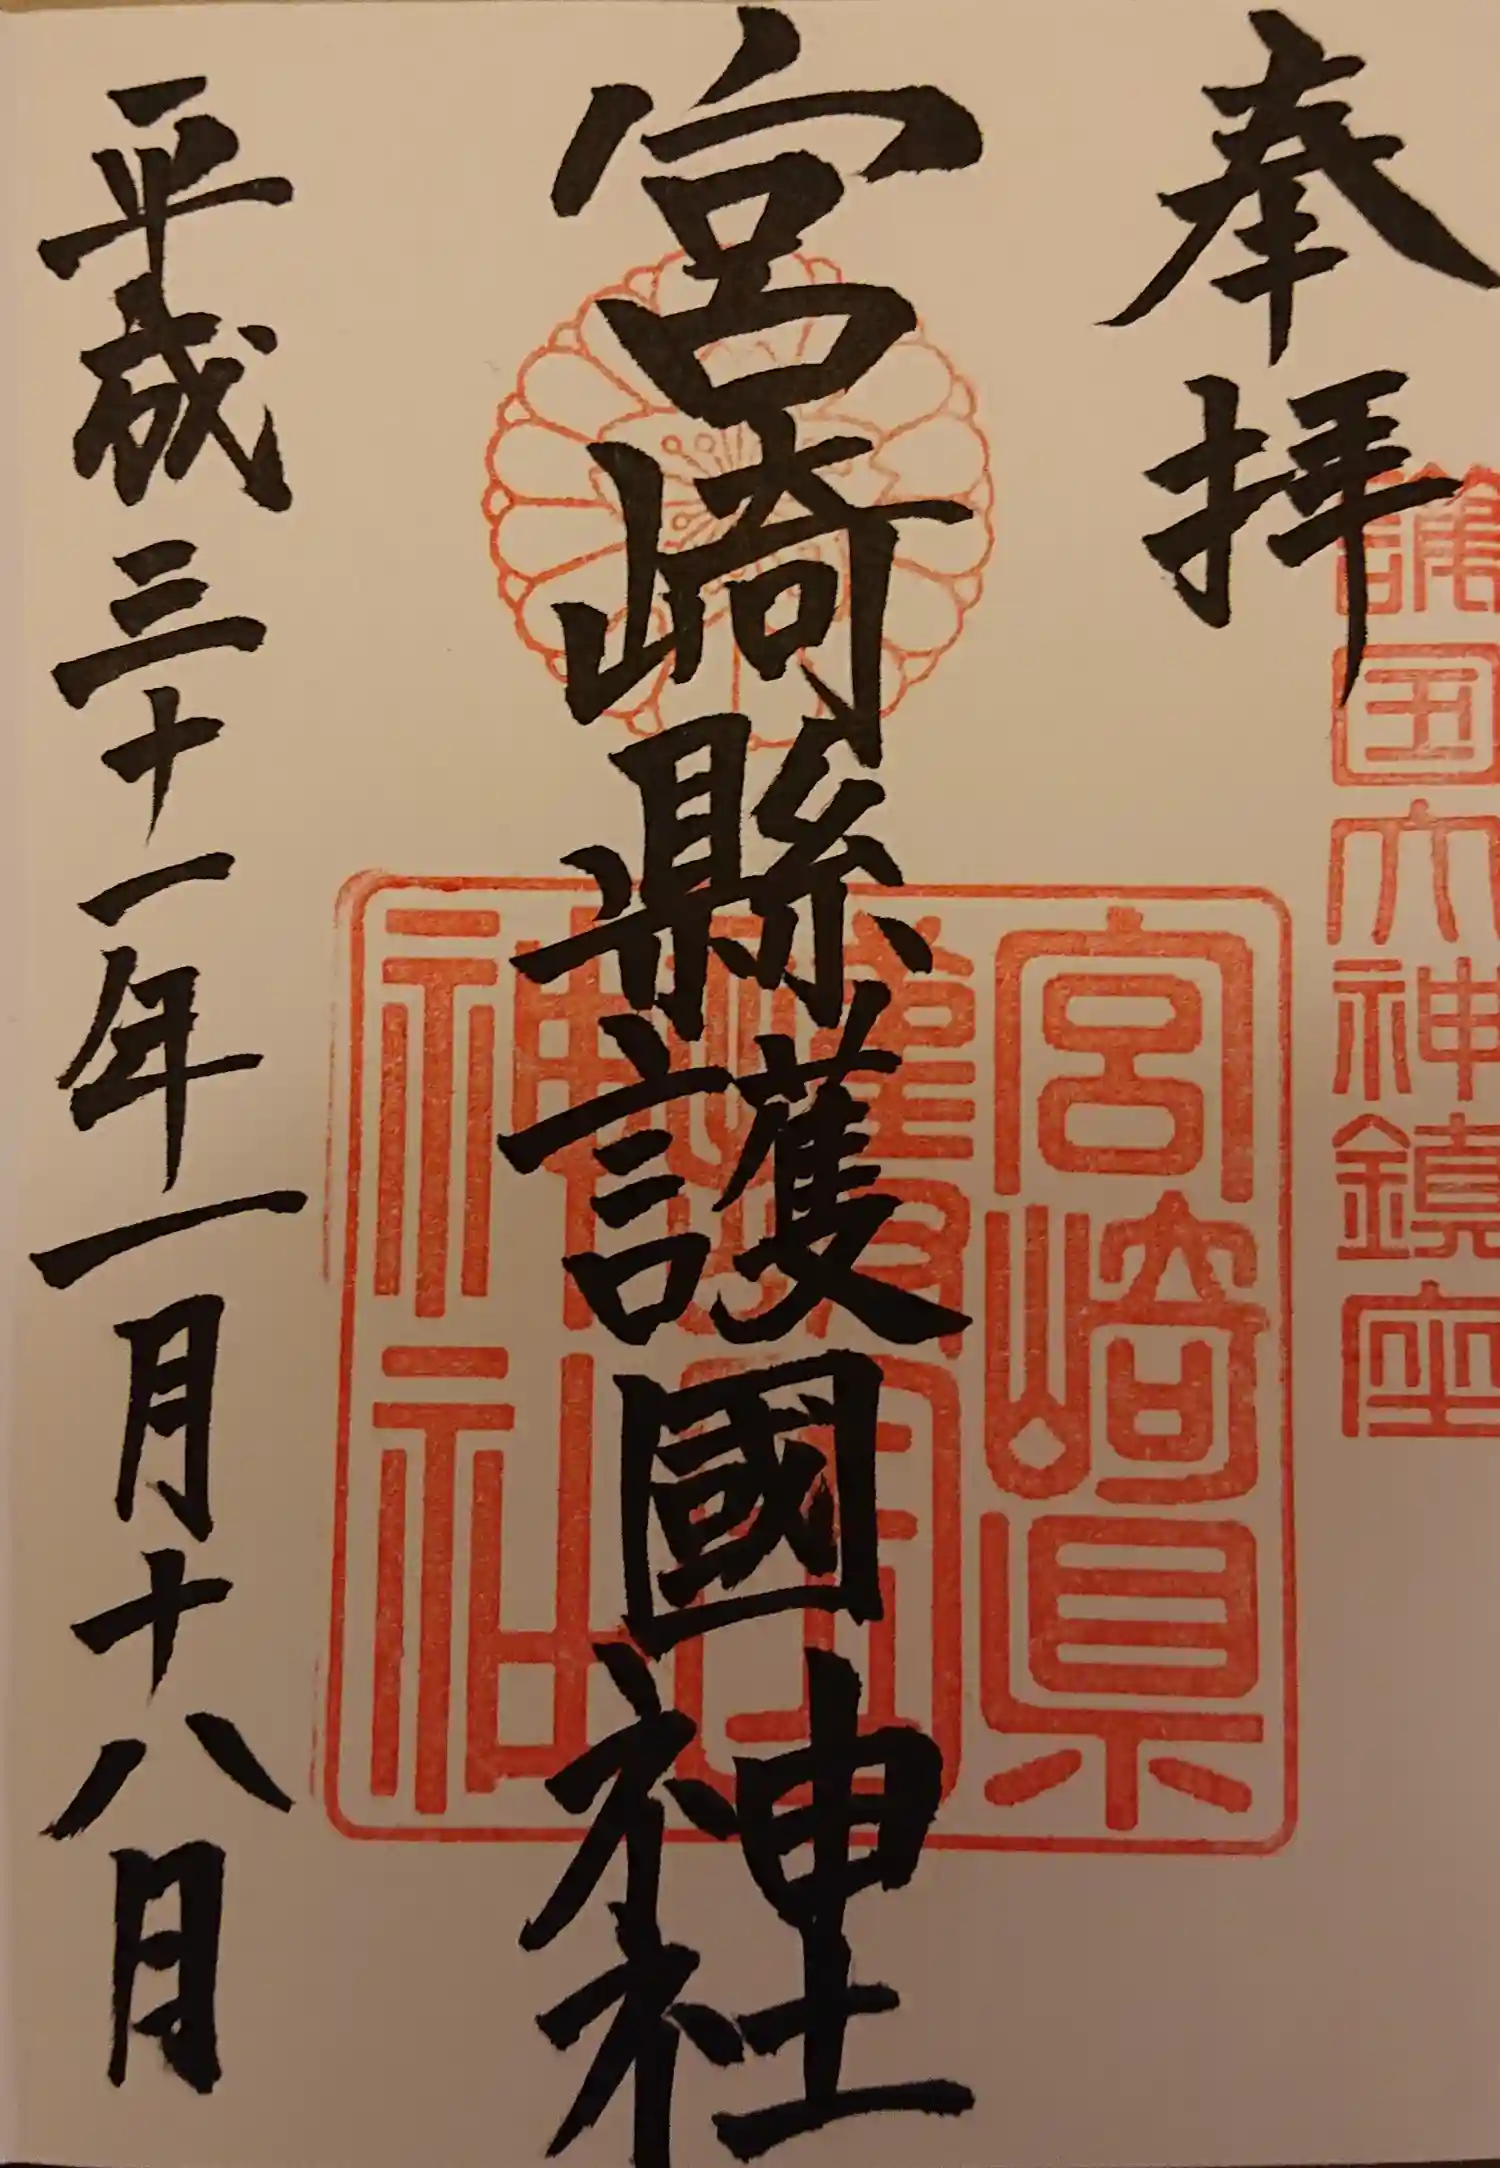 奉拝
護国大神鎮座
宮崎縣護國神社
宮崎縣
護國
神社
平成三十一年一月十八月